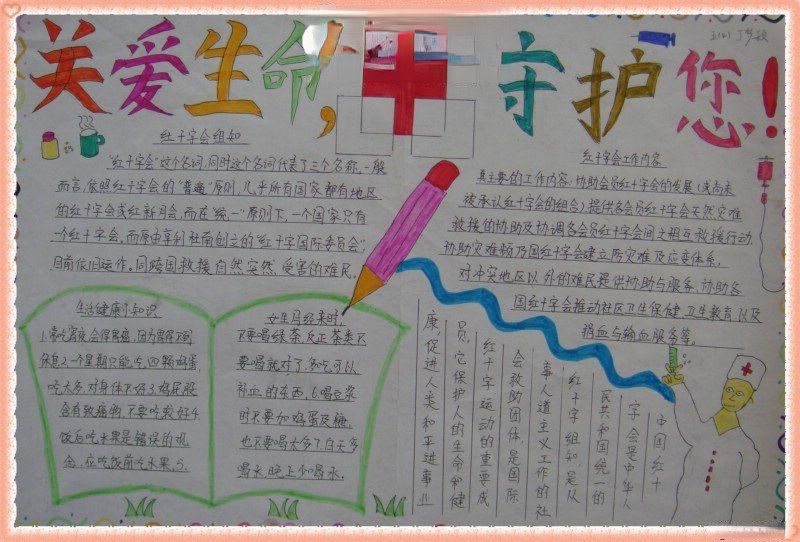 关爱生命,守护您!
红十字会组知
"红十字会"这个名词,同时这个名词代表了三个名称,一般
而言,依照红十字会的"普遍"原则,几乎所有国家都有地区
的红十字会或红新月会,而在"统一"原则下,一个国家只有
一个红十字会,而原由亨利杜南创立的"红十字国际委员会"
目前依旧运作。同跨国救援自然突然、受害的难民。
红十字会工作内容
其主要的工作内容:协助会员红十字会的发展(或尚未
被承认红十字会的组合)提供各会员红十字会天然灾难
救援的协助及协调各会员红十字会间之相互救援行动,
协助灾难频及国红十字会建立防灾难及应变体系,
对冲突地区以外的难民提供协助与服务,协助各
国红十字会推动社区卫生保健、卫生教育以及
捐血与输血服务等。
生活健康小知识
1.常吃宵夜,会得胃癌,因为胃得不到
休息2.一个星期只能吃四颗鸡蛋,
吃太多,对身体不好3.鸡屁股
含有致癌物,不要吃较好4.
饭后吃水果是错误的观
念,应吃饭前吃水果。5.
女生月经来时,
不要喝绿茶,反正茶类不
要喝就对了,多吃可以
补血的东西,6.喝豆浆
时不要加鸡蛋及糖,
也不要喝太多7.白天多
喝水,晚上少喝水.
中国红十
字会是中华人
民共和国统一的
红十字组知,是从
事人道主义工作的社
会救助团体,是国际
红十字运动的重要成
员,它保护人的生命和健
康,促进人类和平进事业